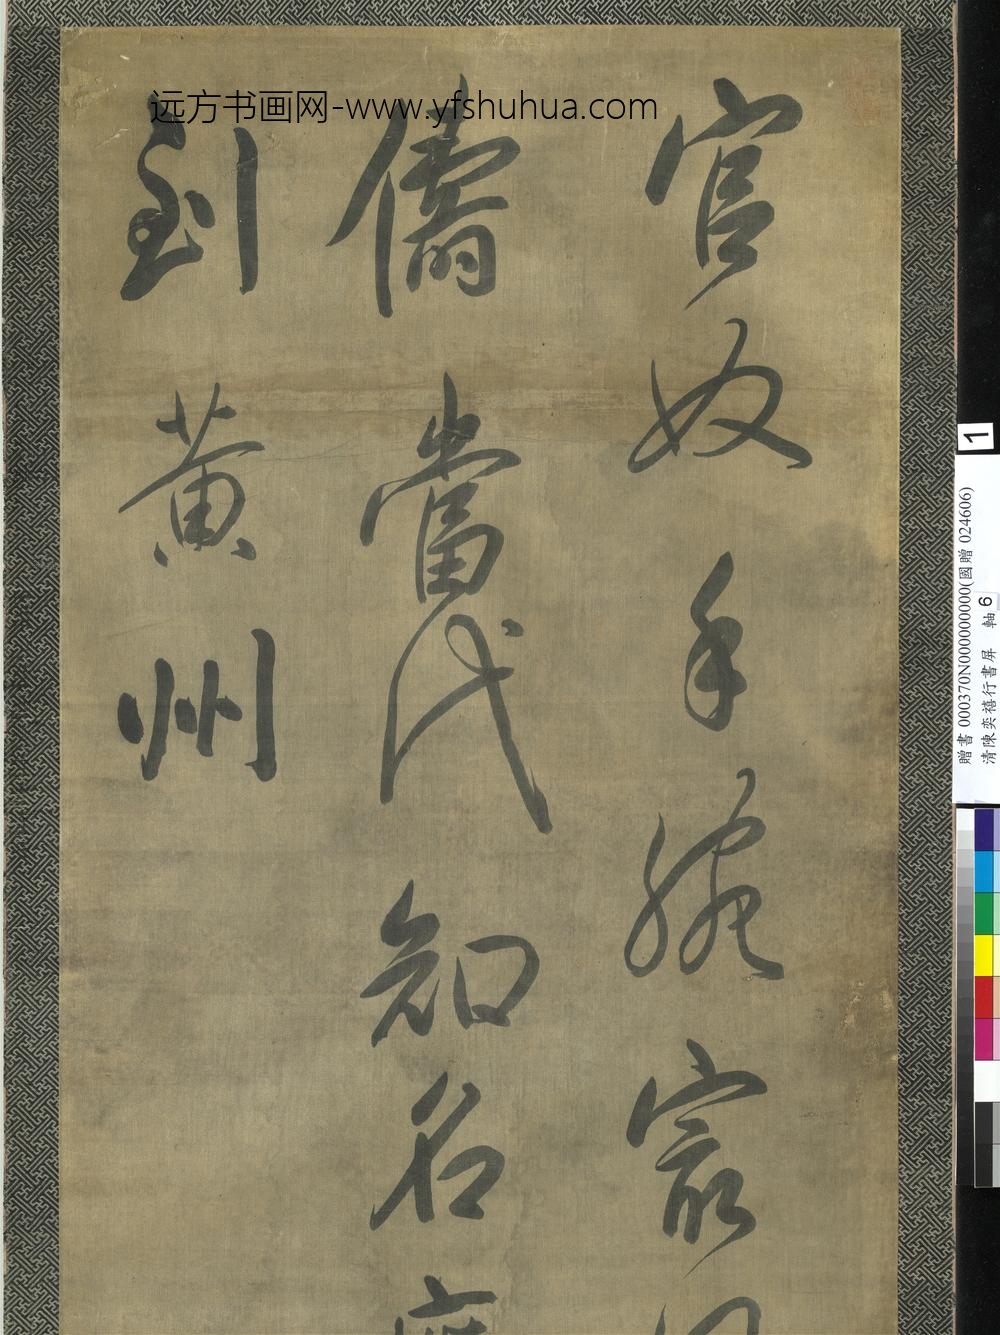 远方书画网-www.yfshuhua.com
官奴手腕最
儔當代知名
到黃州
1
贈書 000370N000000000(國贈 024606)
清陳奕禧行書屏 軸6